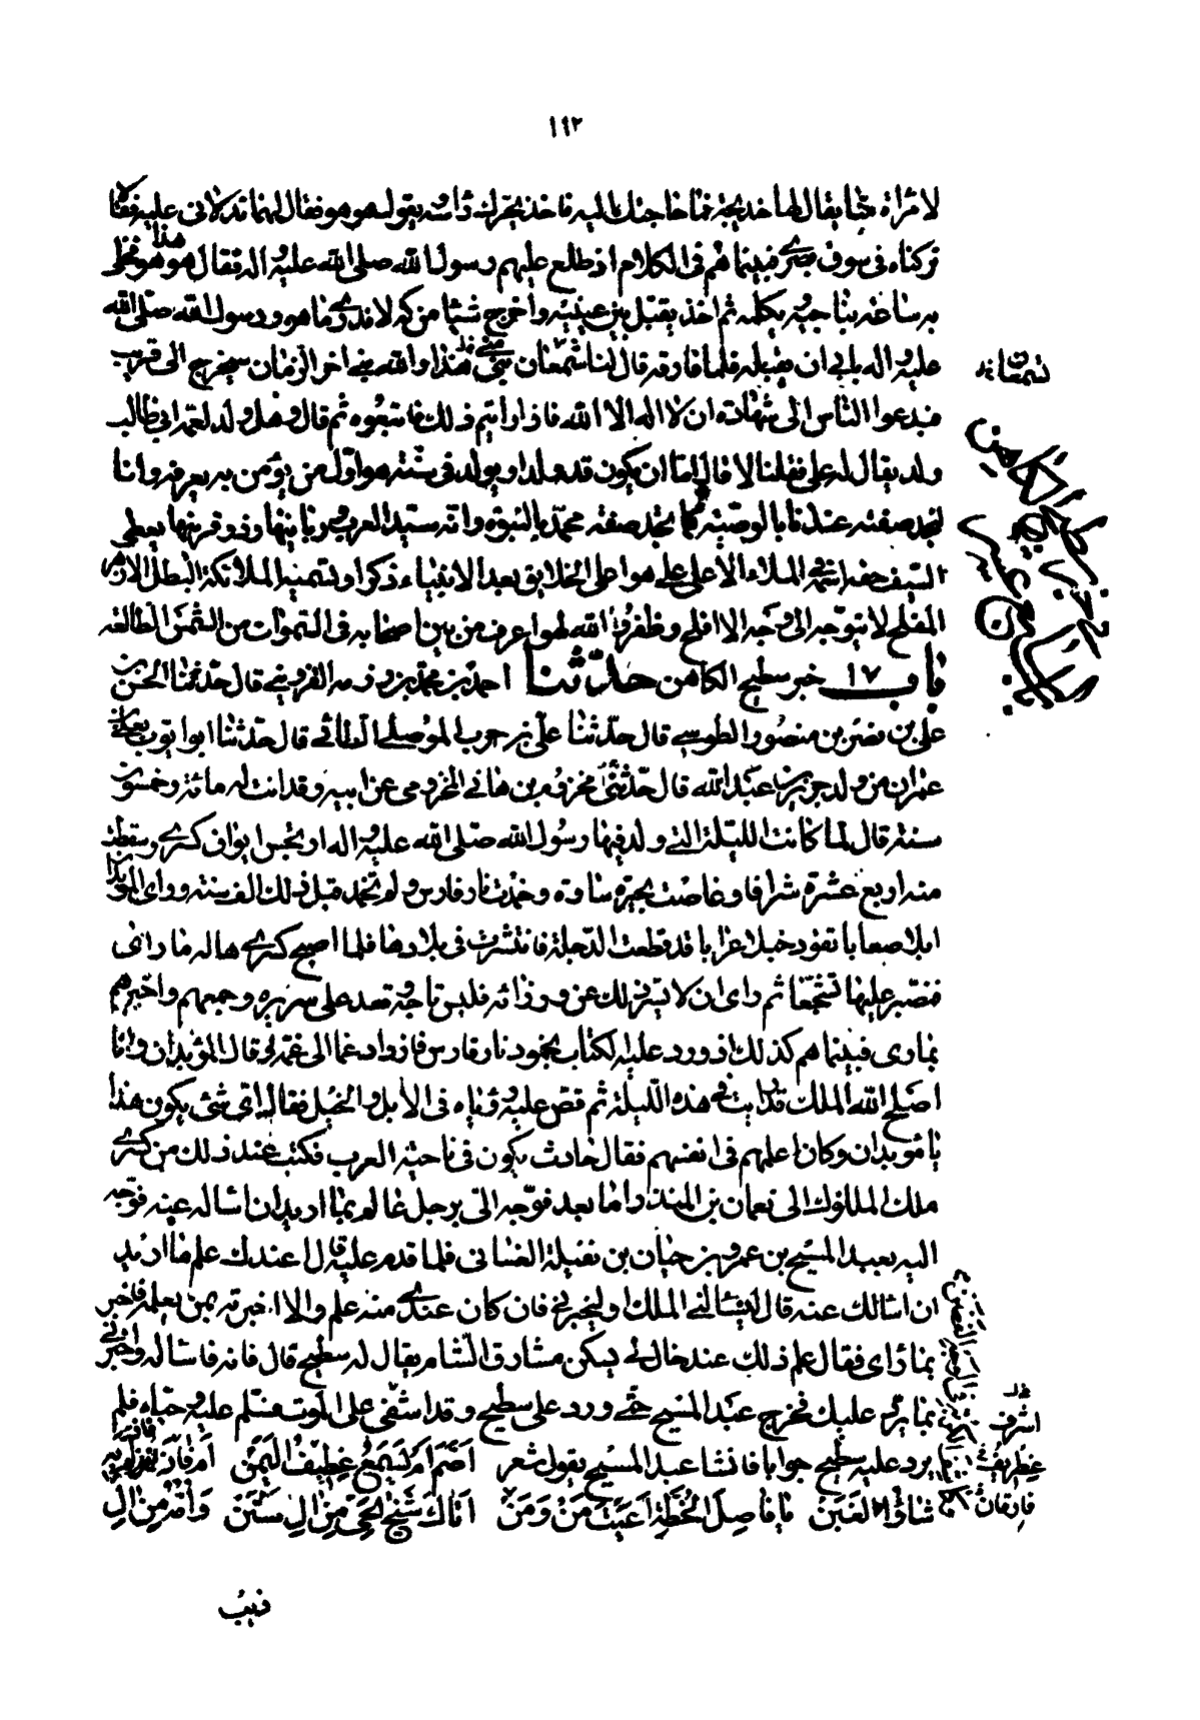 ١٤٢
لامرأة منا يقال لها خديجة فما حاجتك اليه فاخذ يحرك راسه يقول هو هو فقال لهما تدلاني عليه فقلنا
تركناه في سوق بصرى فبينما هم في الكلام اذ طلع عليهم رسول الله صلى الله عليه واله فقال هو هذا هو فخلى
به ساعة يناجيه يكلمه ثم اخذ يقبل بين عينيه واخرج شيئا من كمه لا ندري ما هو ورسول الله صلى الله
عليه واله يابى ان يقبله فلما فارقه قال لنا تسمعان مني هذا والله نبي اخر الزمان سيخرج الى قريب
فيدعوا الناس الى شهادة ان لا اله الا الله فاذا رايتم ذلك فاتبعوه ثم قال وهل ولد لعمه ابي طالب
ولد يقال له علي فقلنا لا قال اما ان يكون قد ولد او يولد في سنته هو اول من يؤمن به يعرفه وانا
لنجد صفته عندنا بالوصية كما نجد صفة محمد بالنبوة وانه سيد العرب وربانيها وذو قرنيها يعطي
السيف حقه اسمه في الملاء الاعلى علي هو اعلى الخلايق بعد الانبياء ذكرا وتسميه الملائكة البطل الازهر
المفلح لا يتوجه الى وجه الا افلح وظفر والله لهو اعرف من بين اصحابه في السموات من الشمس الطالعه
باب ١٧ خبر سطيح الكاهن حدثنا احمد بن محمد بن رزمه القزويني قال حدثنا الحسن بن
علي بن نصر بن منصور الطوسي قال حدثنا علي بن حرب الموصلي الطائي قال حدثنا ابو ايوب يعلى بن
عمران من ولد جرير بن عبد الله قال حدثني مخزوم بن هاني المخزومي عن ابيه وقد اتت له مائة وخمسون
سنة قال لما كانت الليلة التي ولد فيها رسول الله صلى الله عليه واله ارتجس ايوان كسرى وسقطت
منه اربع عشرة شرافا وغاضت بحيره ساوه وخمدت نار فارس ولم تخمد قبل ذلك الف سنة وراى الموبذان
ابلا صعابا تقود خيلا عرابا قد قطعت الدجلة فانتشرت في بلادها فلما اصبح كسرى هاله ما راى
فتصبر عليها تشجعا ثم راى ان لا يستر ذلك عن وزرائه فلبس تاجه وقعد على سريره وجمعهم واخبرهم
بما راى فبينما هم كذلك اذ ورد عليه الكتاب بخمود نار فارس فازداد غما الى غمه وقال الموبذان وانا
اصلح الله الملك قد رايت في هذه الليلة ثم قص عليه رؤياه في الابل والخيل فقال اي شئ يكون هذا
يا موبذان وكان اعلمهم في انفسهم فقال حادث يكون في ناحية العرب فكتب عند ذلك من كسرى
ملك الملوك الى نعمان بن المنذر اما بعد فوجه الي برجل عالم بما اريد ان اساله عنه فوجه
اليه بعبد المسيح بن عمرو بن حيان بن نفيلة الغساني فلما قدم عليه قال اعندك علم ما اريد
ان اسالك عنه قال ليسالني الملك او ليخبرني فان كان عندي منه علم والا اخبرته بمن يعلمه فاخبره
بما راى فقال علم ذلك عند خال لي يسكن مشارق الشام يقال له سطيح قال فاته فاساله واخبرني
بما يرد عليك فخرج عبد المسيح حتى ورد على سطيح وقد اشفى على الموت فسلم عليه وحياه فلم
يرد عليه سطيح جوابا فانشا عبد المسيح يقول شعر اصم ام يسمع غطريف اليمن ام فاز فازلم به
شاو العنن يا فاصل الخطة اعيت من ومن اتاك شيخ الحي من ال سنن وامه من ال
تسمعان
خبر سطيح الكاهن
اشرف
ذيب